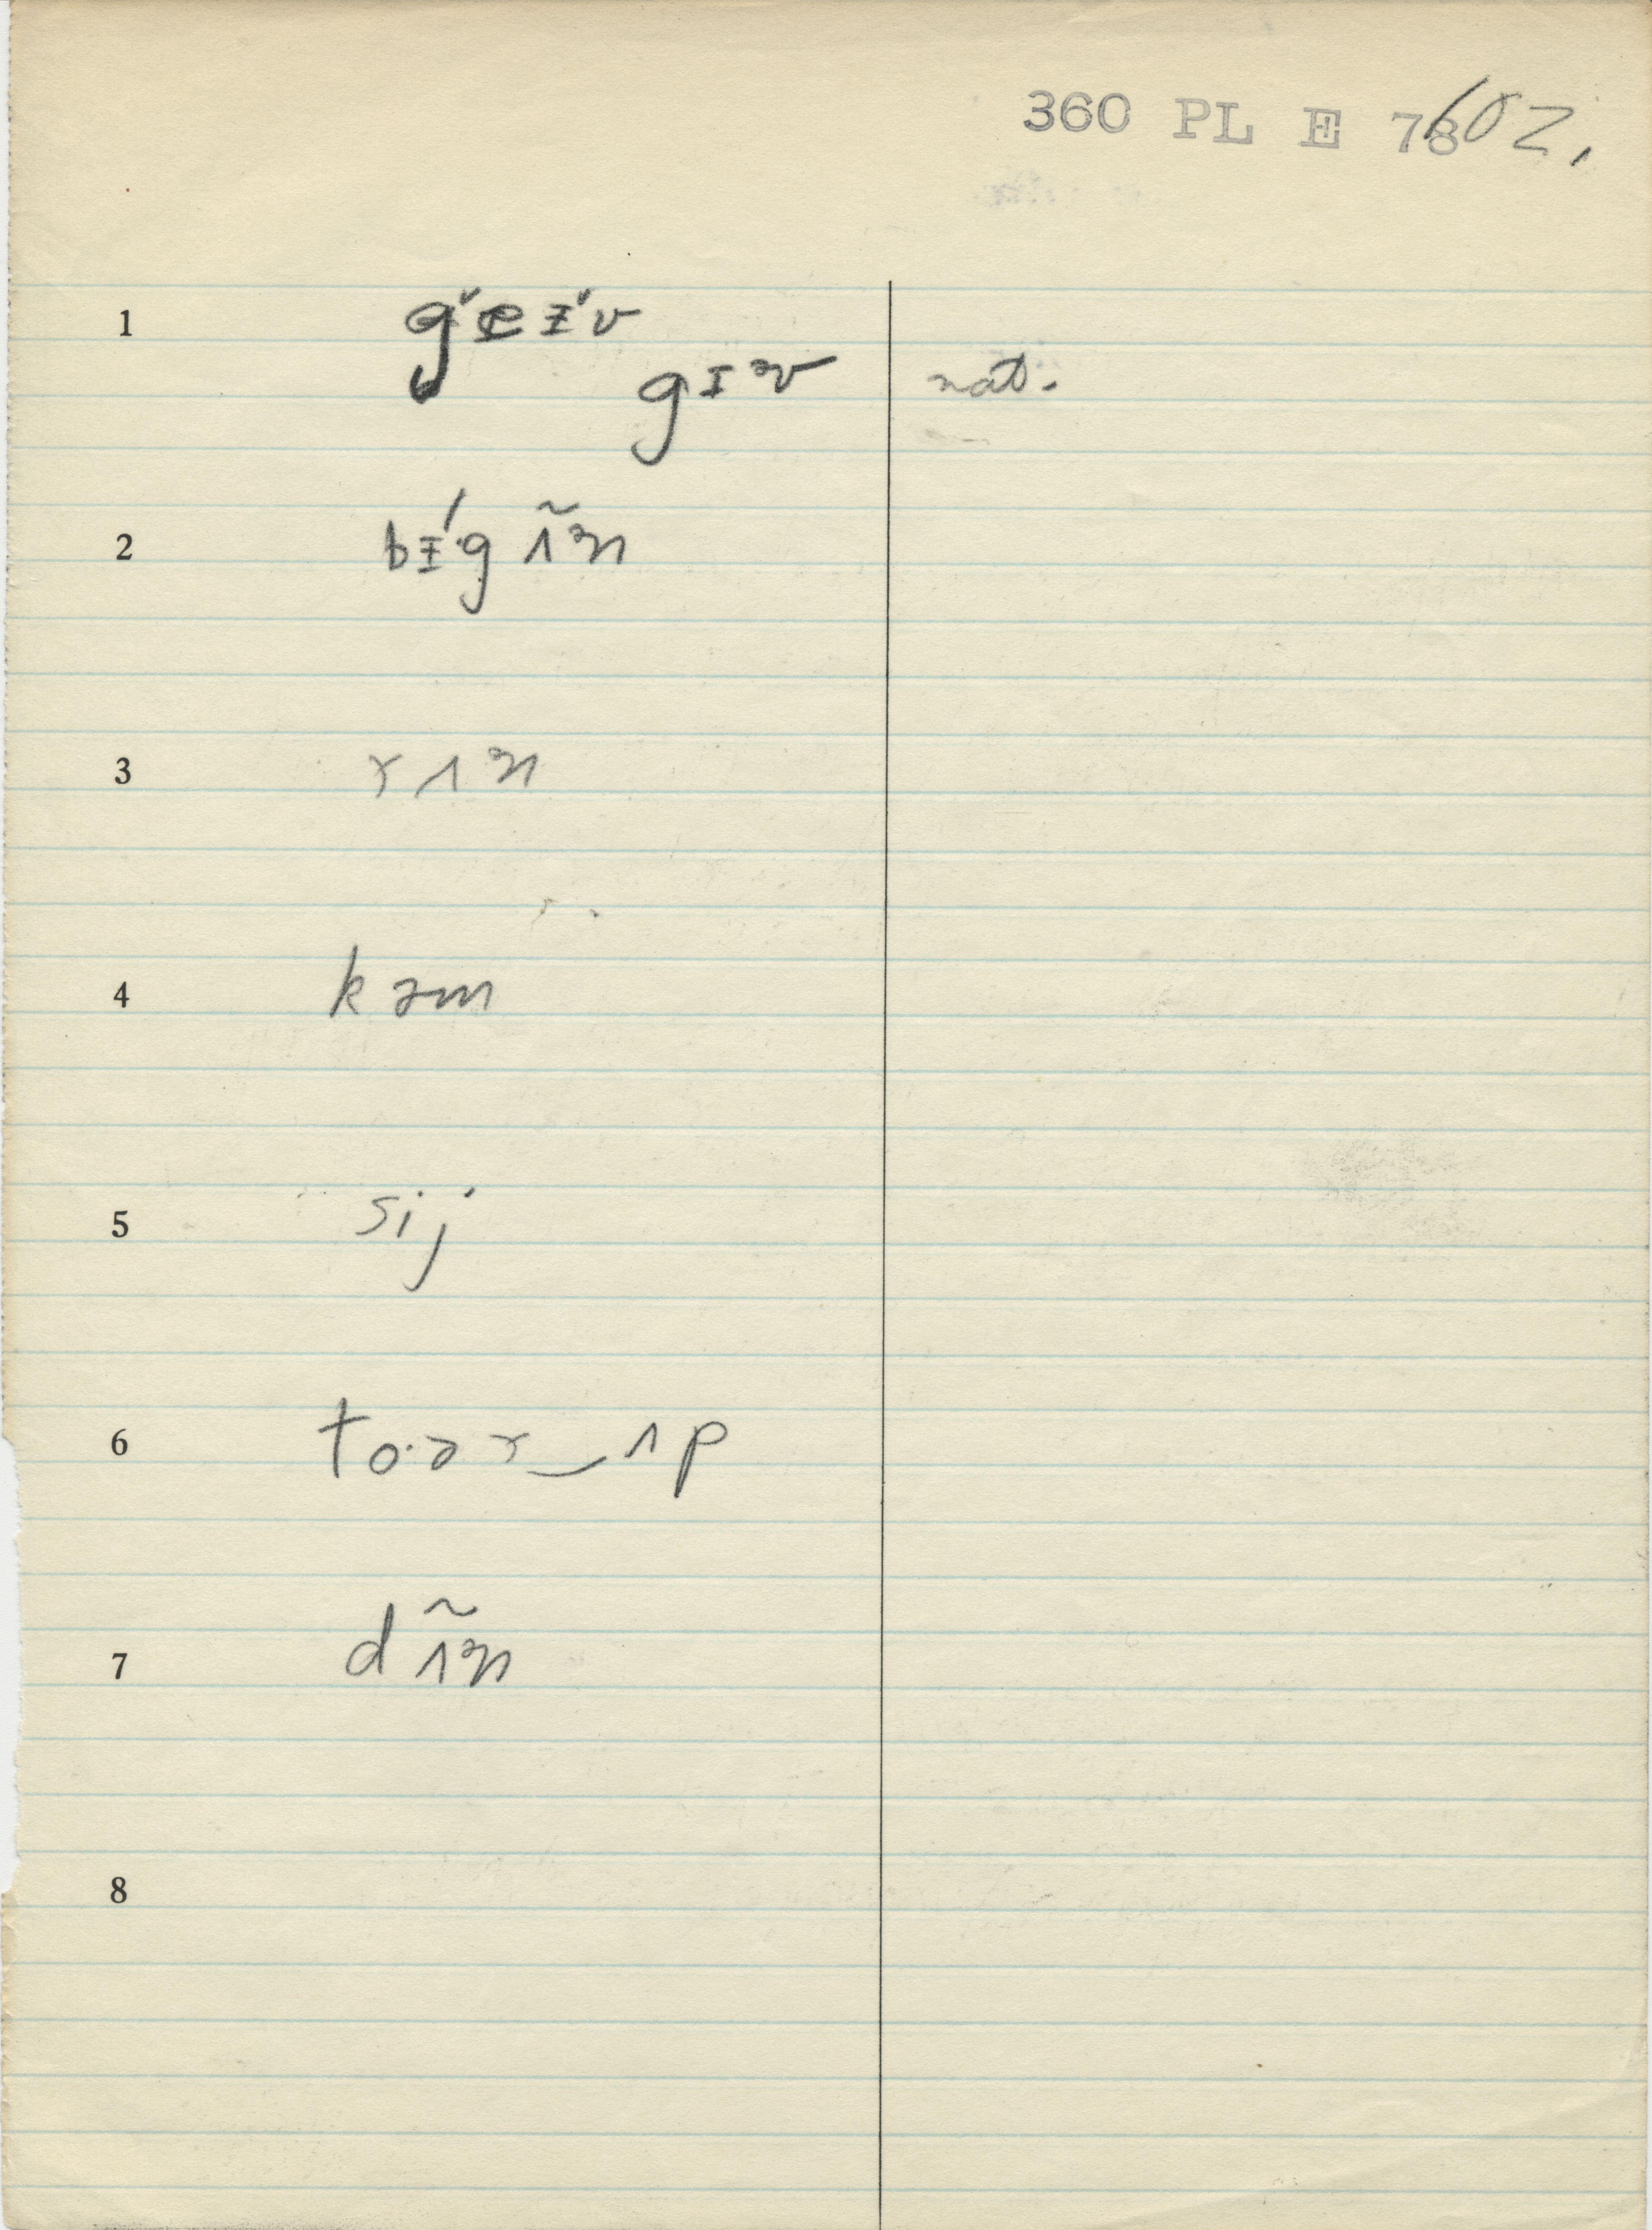 360 PL E 78 102.
1 g˅eɪ˅v
gɪv nat.
2 bɪ́·g ʌ̃n
3 rʌn
4 kəm
5 sij
6 to·ər‿ʌp
7 dʌ̃n
8